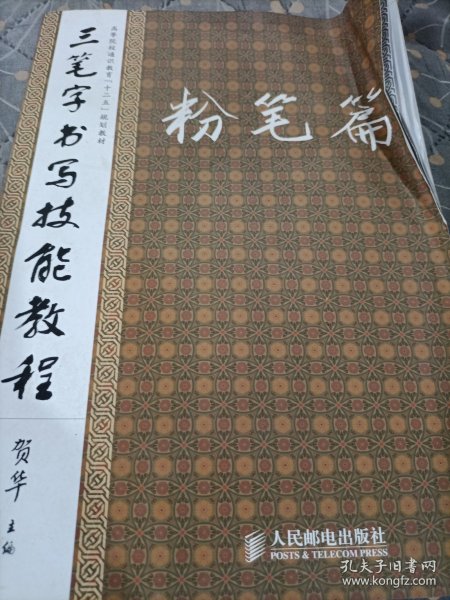 高等院校通识教育「十二五」规划教材
三笔字书写技能教程
贺华 主编
粉笔篇
人民邮电出版社
POSTS & TELECOM PRESS
孔夫子旧书网
www.kongfz.com